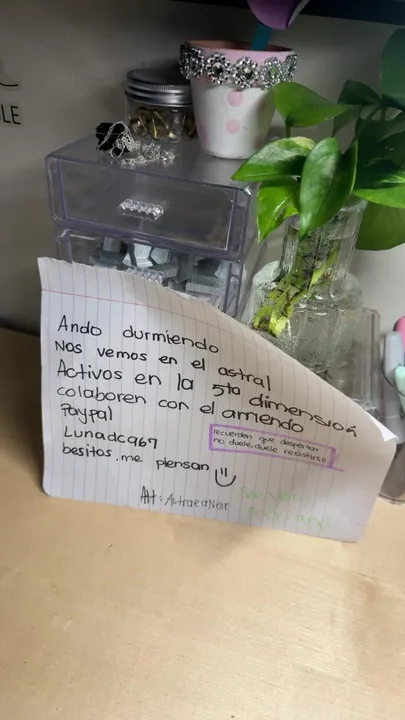 LE
Ando durmiendo
Nos vemos en el astral
Activos en la 5ta dimensión
colaboren con el arriendo
Paypal
Lunadca67
besitos, me piensan
recuerden que despertar
no duele, duele resistirse
Att: AstraeaNoir